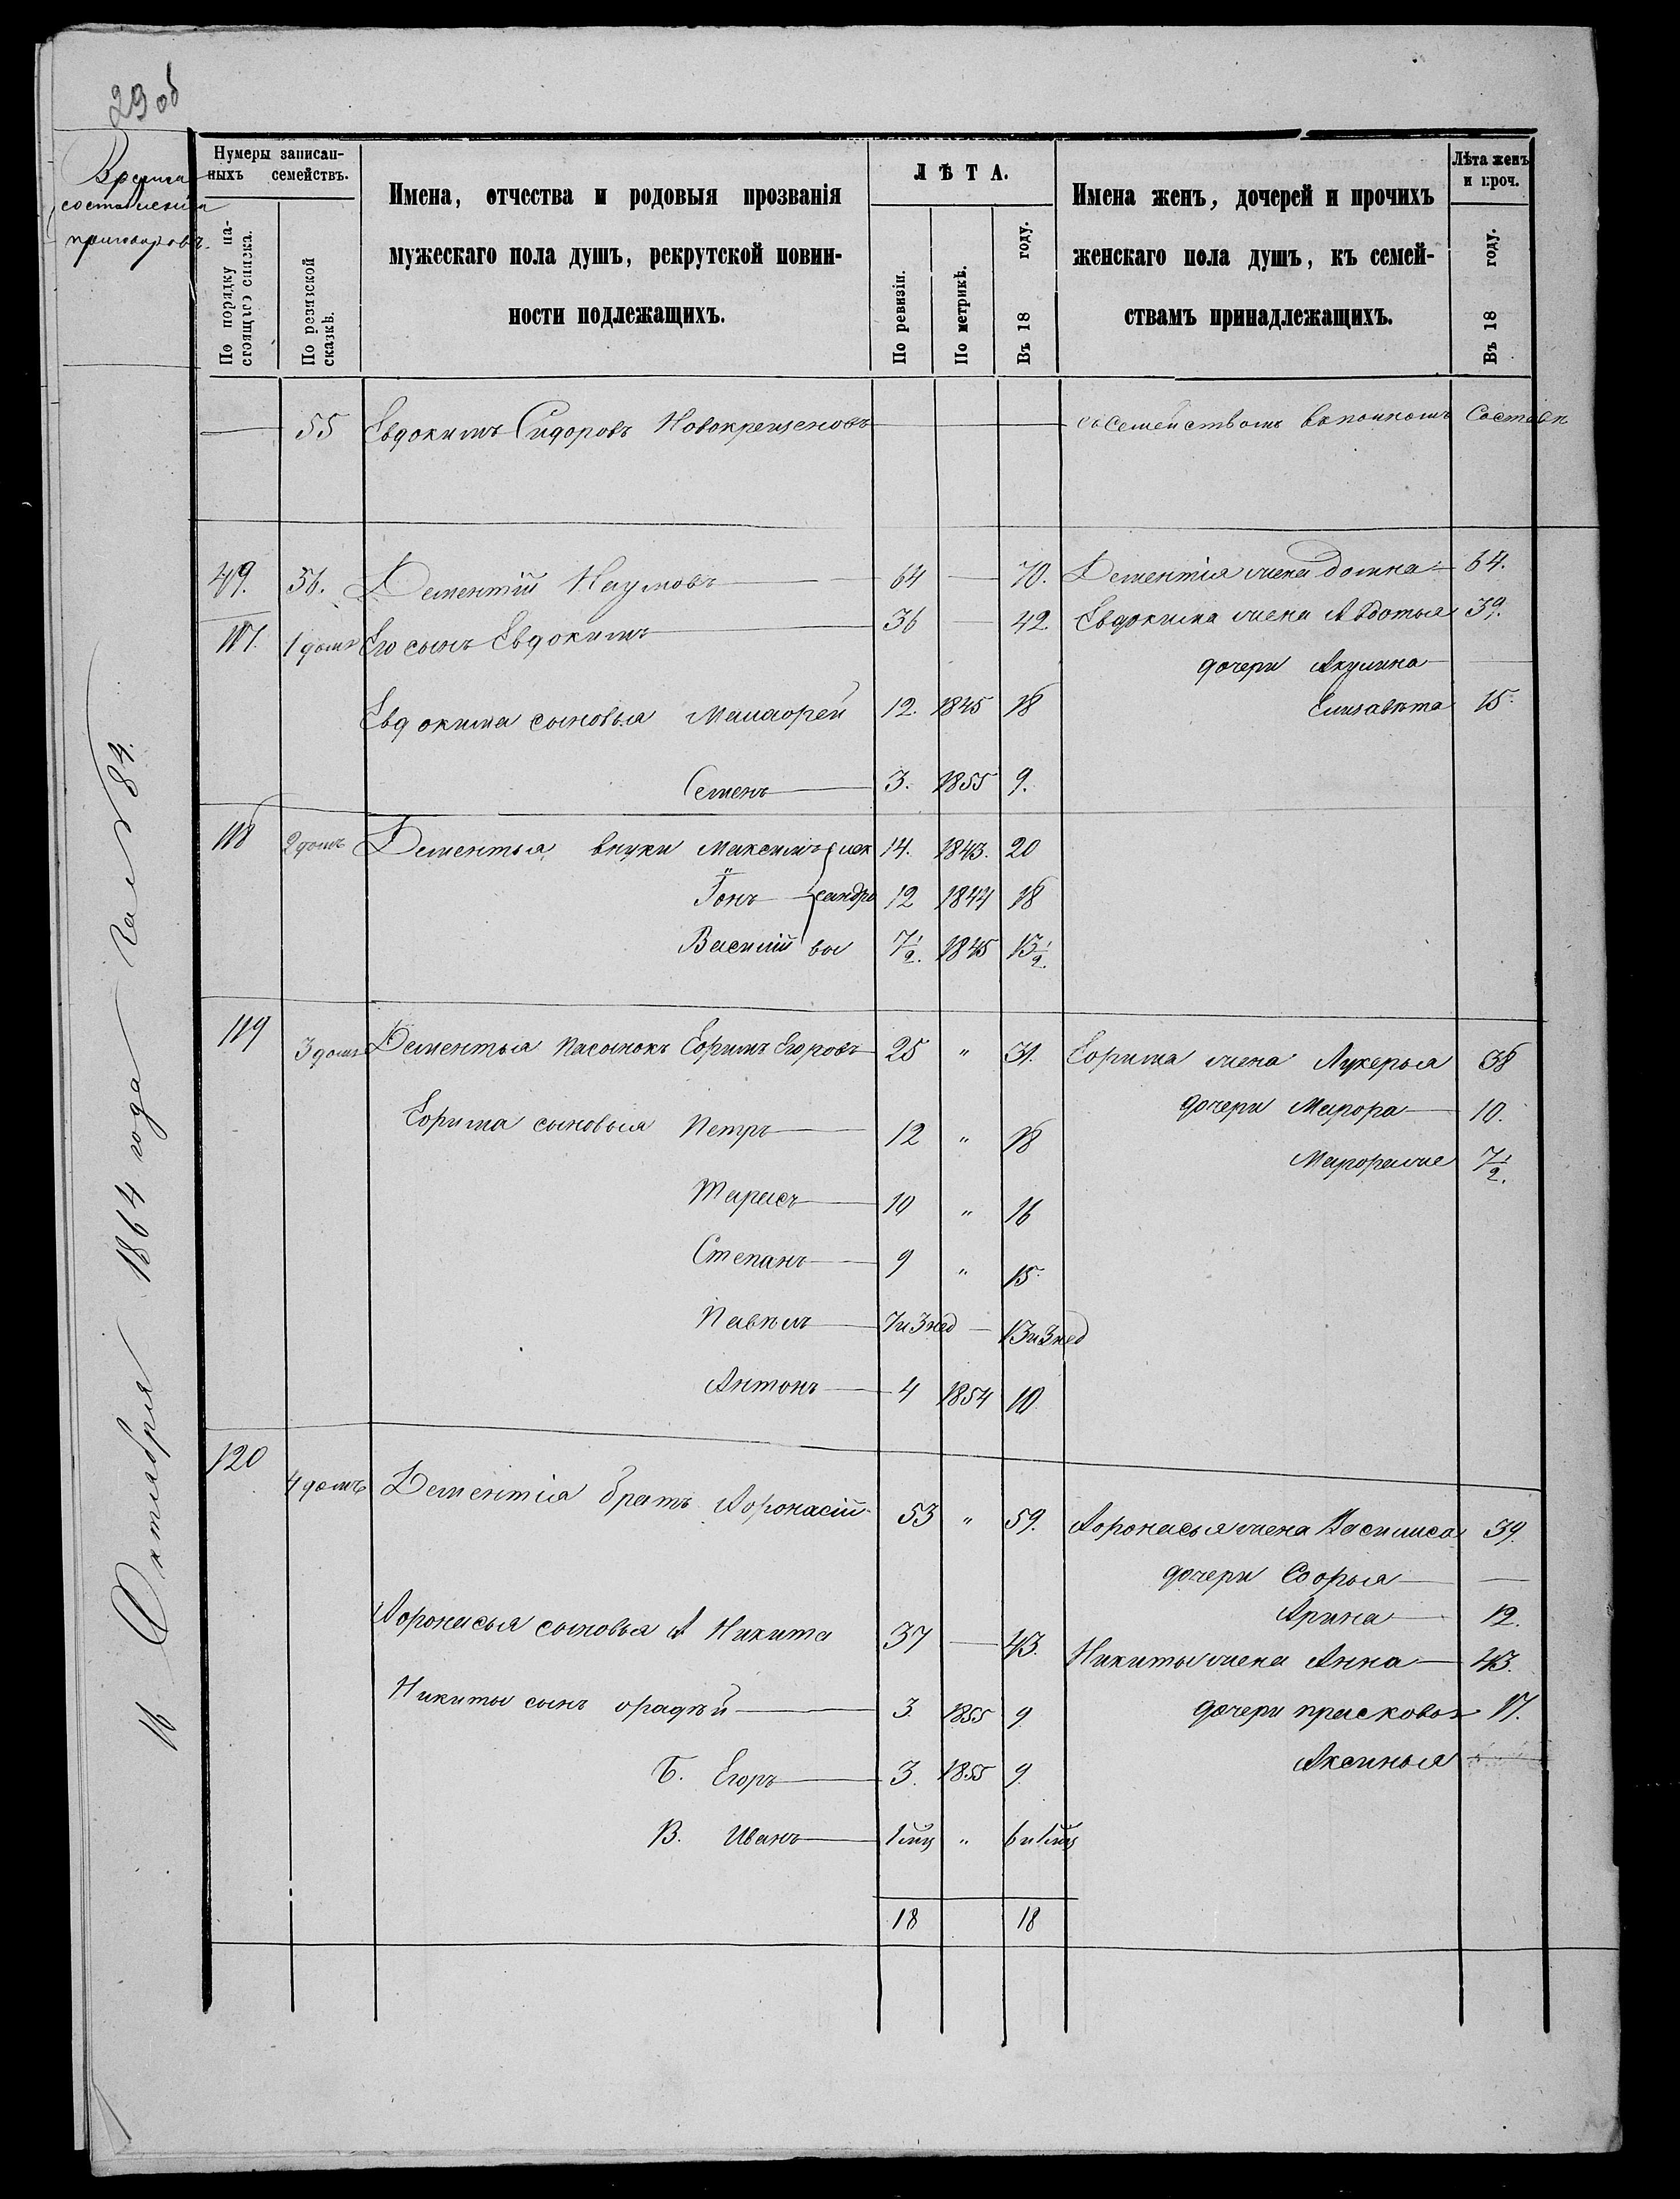 29 об
Время
составленія
приговоровъ.
Нумеры записан-
ныхъ семействъ.
По порядку на-
стоящаго списка.
По ревизской
сказкѣ.
Имена, отчества и родовыя прозванія
мужескаго пола душъ, рекрутской повин-
ности подлежащихъ.
ЛѢТА.
По ревизіи.
По метрикѣ.
Въ 18 году.
Имена женъ, дочерей и прочихъ
женскаго пола душъ, къ семей-
ствамъ принадлежащихъ.
Лѣта женъ
и проч.
Въ 18 году.
16 Октября 1864 года За № 84.
55 Евдокимъ Сидоровъ Новокрещеновъ съ семействомъ въ полномъ Составѣ
49. 56. Дементій Наумовъ 64 70. Дементія жена Домна 64.
117. 1 домъ Его сынъ Евдокимъ 36 42. Евдокима жена Авдотья 39.
дочери Акулина
Евдокима сыновья Малафей 12. 1845 18 Елизавета 15.
Семенъ 3. 1855 9.
118 2 домъ Дементья внуки Максимъ Алек 14. 1843. 20
Іонъ сандро 12 1844 18
Василій вы 7½. 1845 13½.
119 3 домъ Дементья пасынокъ Ефимъ Егоровъ 25 " 31. Ефима жена Лукерья 38
дочери Марфа 10.
Ефима сыновья Петръ 12 " 18
Марфа 7½.
Тарасъ 10 " 16
Степанъ 9 " 15.
Павелъ 7 и 3 нед 13 и 3 нед
Антонъ 4 1854 10
120 4 домъ Дементія братъ Афонасій 53 " 59. Афонасья жена Василиса 39.
дочери Софья
Арина 12.
Афонасья сыновья А Никита 37 43. Никиты жена Анна 43.
Никиты сынъ Фадѣй 3. 1855 9. дочери прасковья 17.
Аксинья
Б. Егоръ 3. 1855 9.
В. Иванъ 1 мц " 6 и 1 мц
18 18